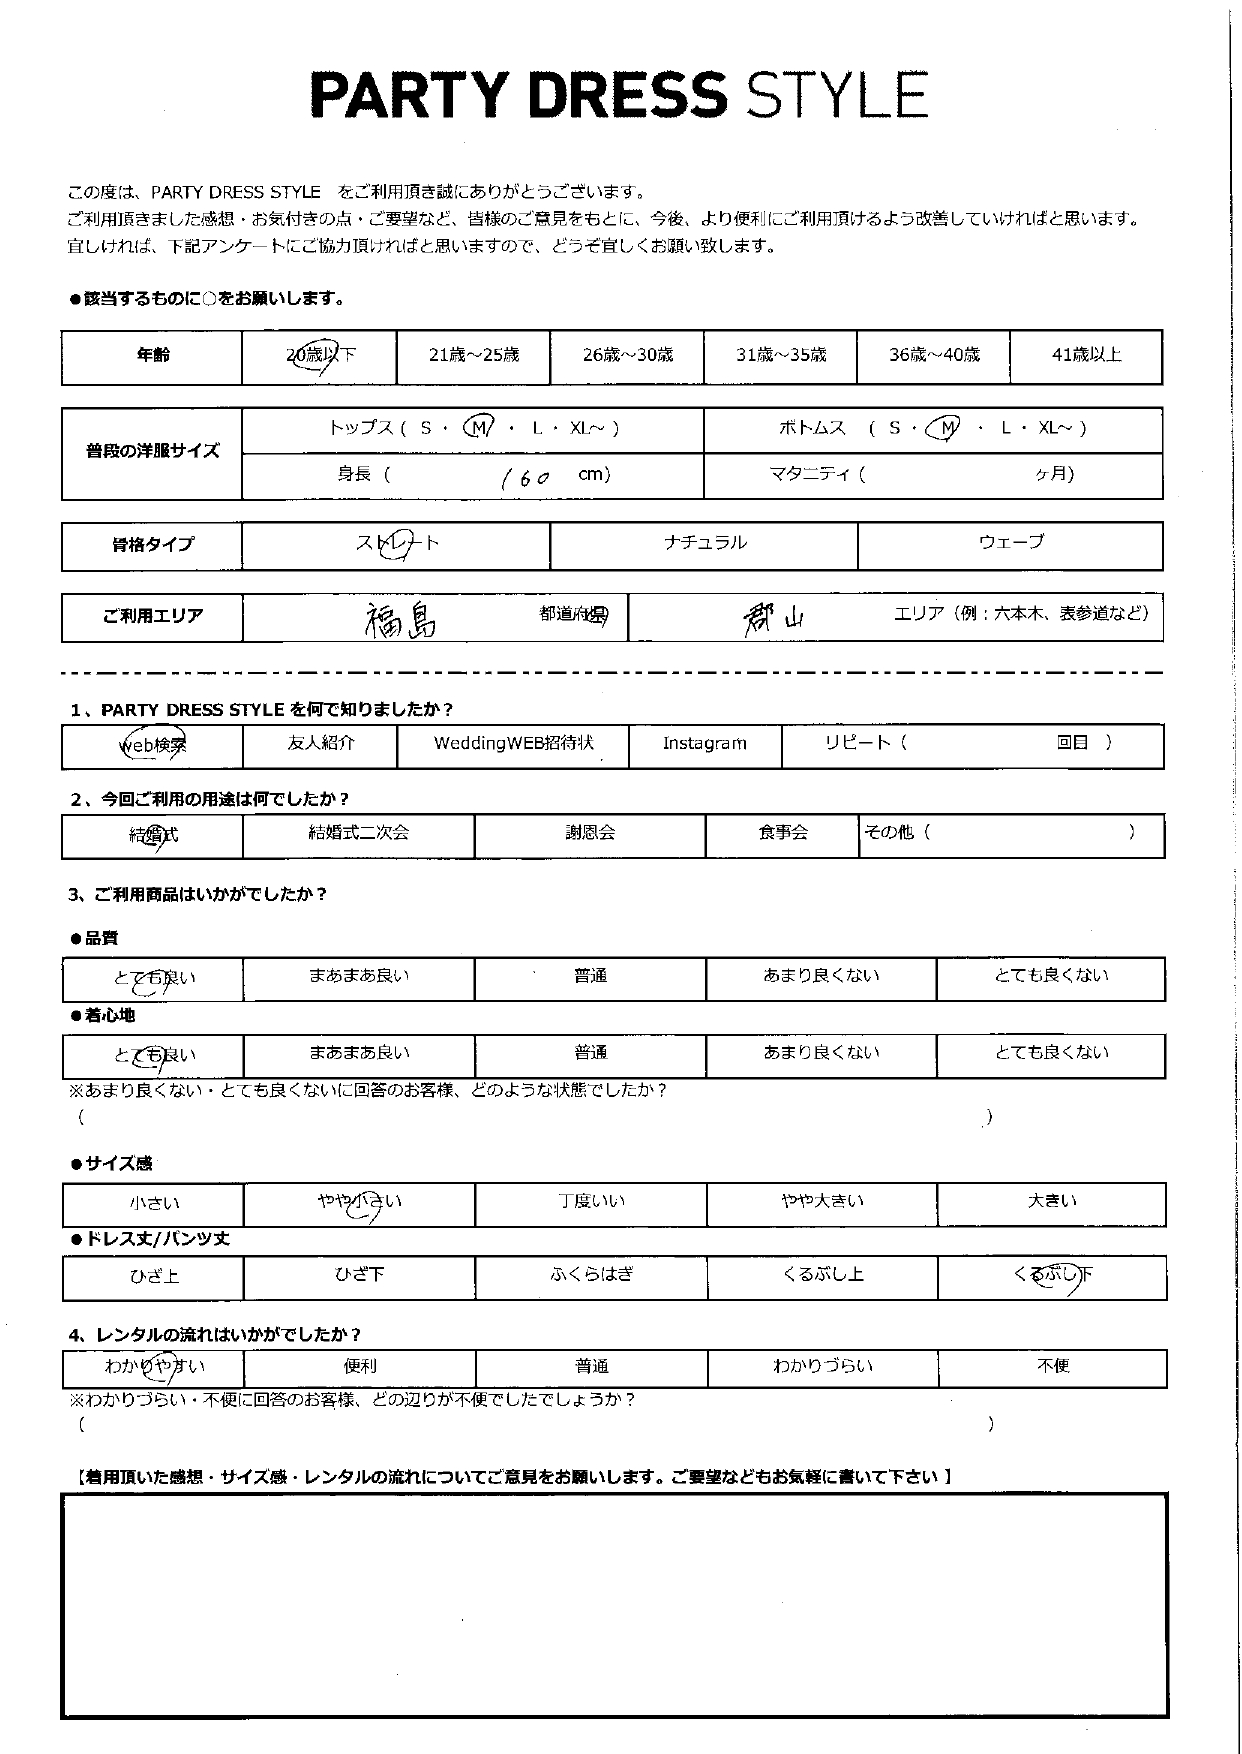 PARTY DRESS STYLE
この度は、PARTY DRESS STYLE をご利用頂き誠にありがとうございます。
ご利用頂きました感想・お気付きの点・ご要望など、皆様のご意見をもとに、今後、より便利にご利用頂けるよう改善していければと思います。
宜しければ、下記アンケートにご協力頂ければと思いますので、どうぞ宜しくお願い致します。
●該当するものに○をお願いします。
年齢 20歳以下 21歳～25歳 26歳～30歳 31歳～35歳 36歳～40歳 41歳以上
普段の洋服サイズ
トップス ( S ・ M ・ L ・ XL～ ) ボトムス ( S ・ M ・ L ・ XL～ )
身長 ( 160 cm) マタニティ ( ヶ月)
骨格タイプ ストレート ナチュラル ウェーブ
ご利用エリア 福島 都道府県 郡山 エリア（例：六本木、表参道など）
1、PARTY DRESS STYLE を何で知りましたか？
web検索 友人紹介 WeddingWEB招待状 Instagram リピート（ 回目 ）
2、今回ご利用の用途は何でしたか？
結婚式 結婚式二次会 謝恩会 食事会 その他（ ）
3、ご利用商品はいかがでしたか？
●品質
とても良い まあまあ良い 普通 あまり良くない とても良くない
●着心地
とても良い まあまあ良い 普通 あまり良くない とても良くない
※あまり良くない・とても良くないに回答のお客様、どのような状態でしたか？
（ ）
●サイズ感
小さい やや小さい 丁度いい やや大きい 大きい
●ドレス丈/パンツ丈
ひざ上 ひざ下 ふくらはぎ くるぶし上 くるぶし下
4、レンタルの流れはいかがでしたか？
わかりやすい 便利 普通 わかりづらい 不便
※わかりづらい・不便に回答のお客様、どの辺りが不便でしたでしょうか？
（ ）
【着用頂いた感想・サイズ感・レンタルの流れについてご意見をお願いします。ご要望などもお気軽に書いて下さい】